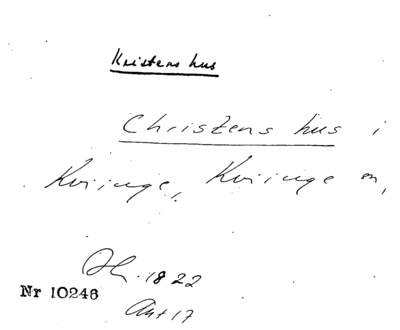 Kristens hus
Christens hus i
Kviinge, Kviinge sn,
1822
Nr 10246
Akt 17